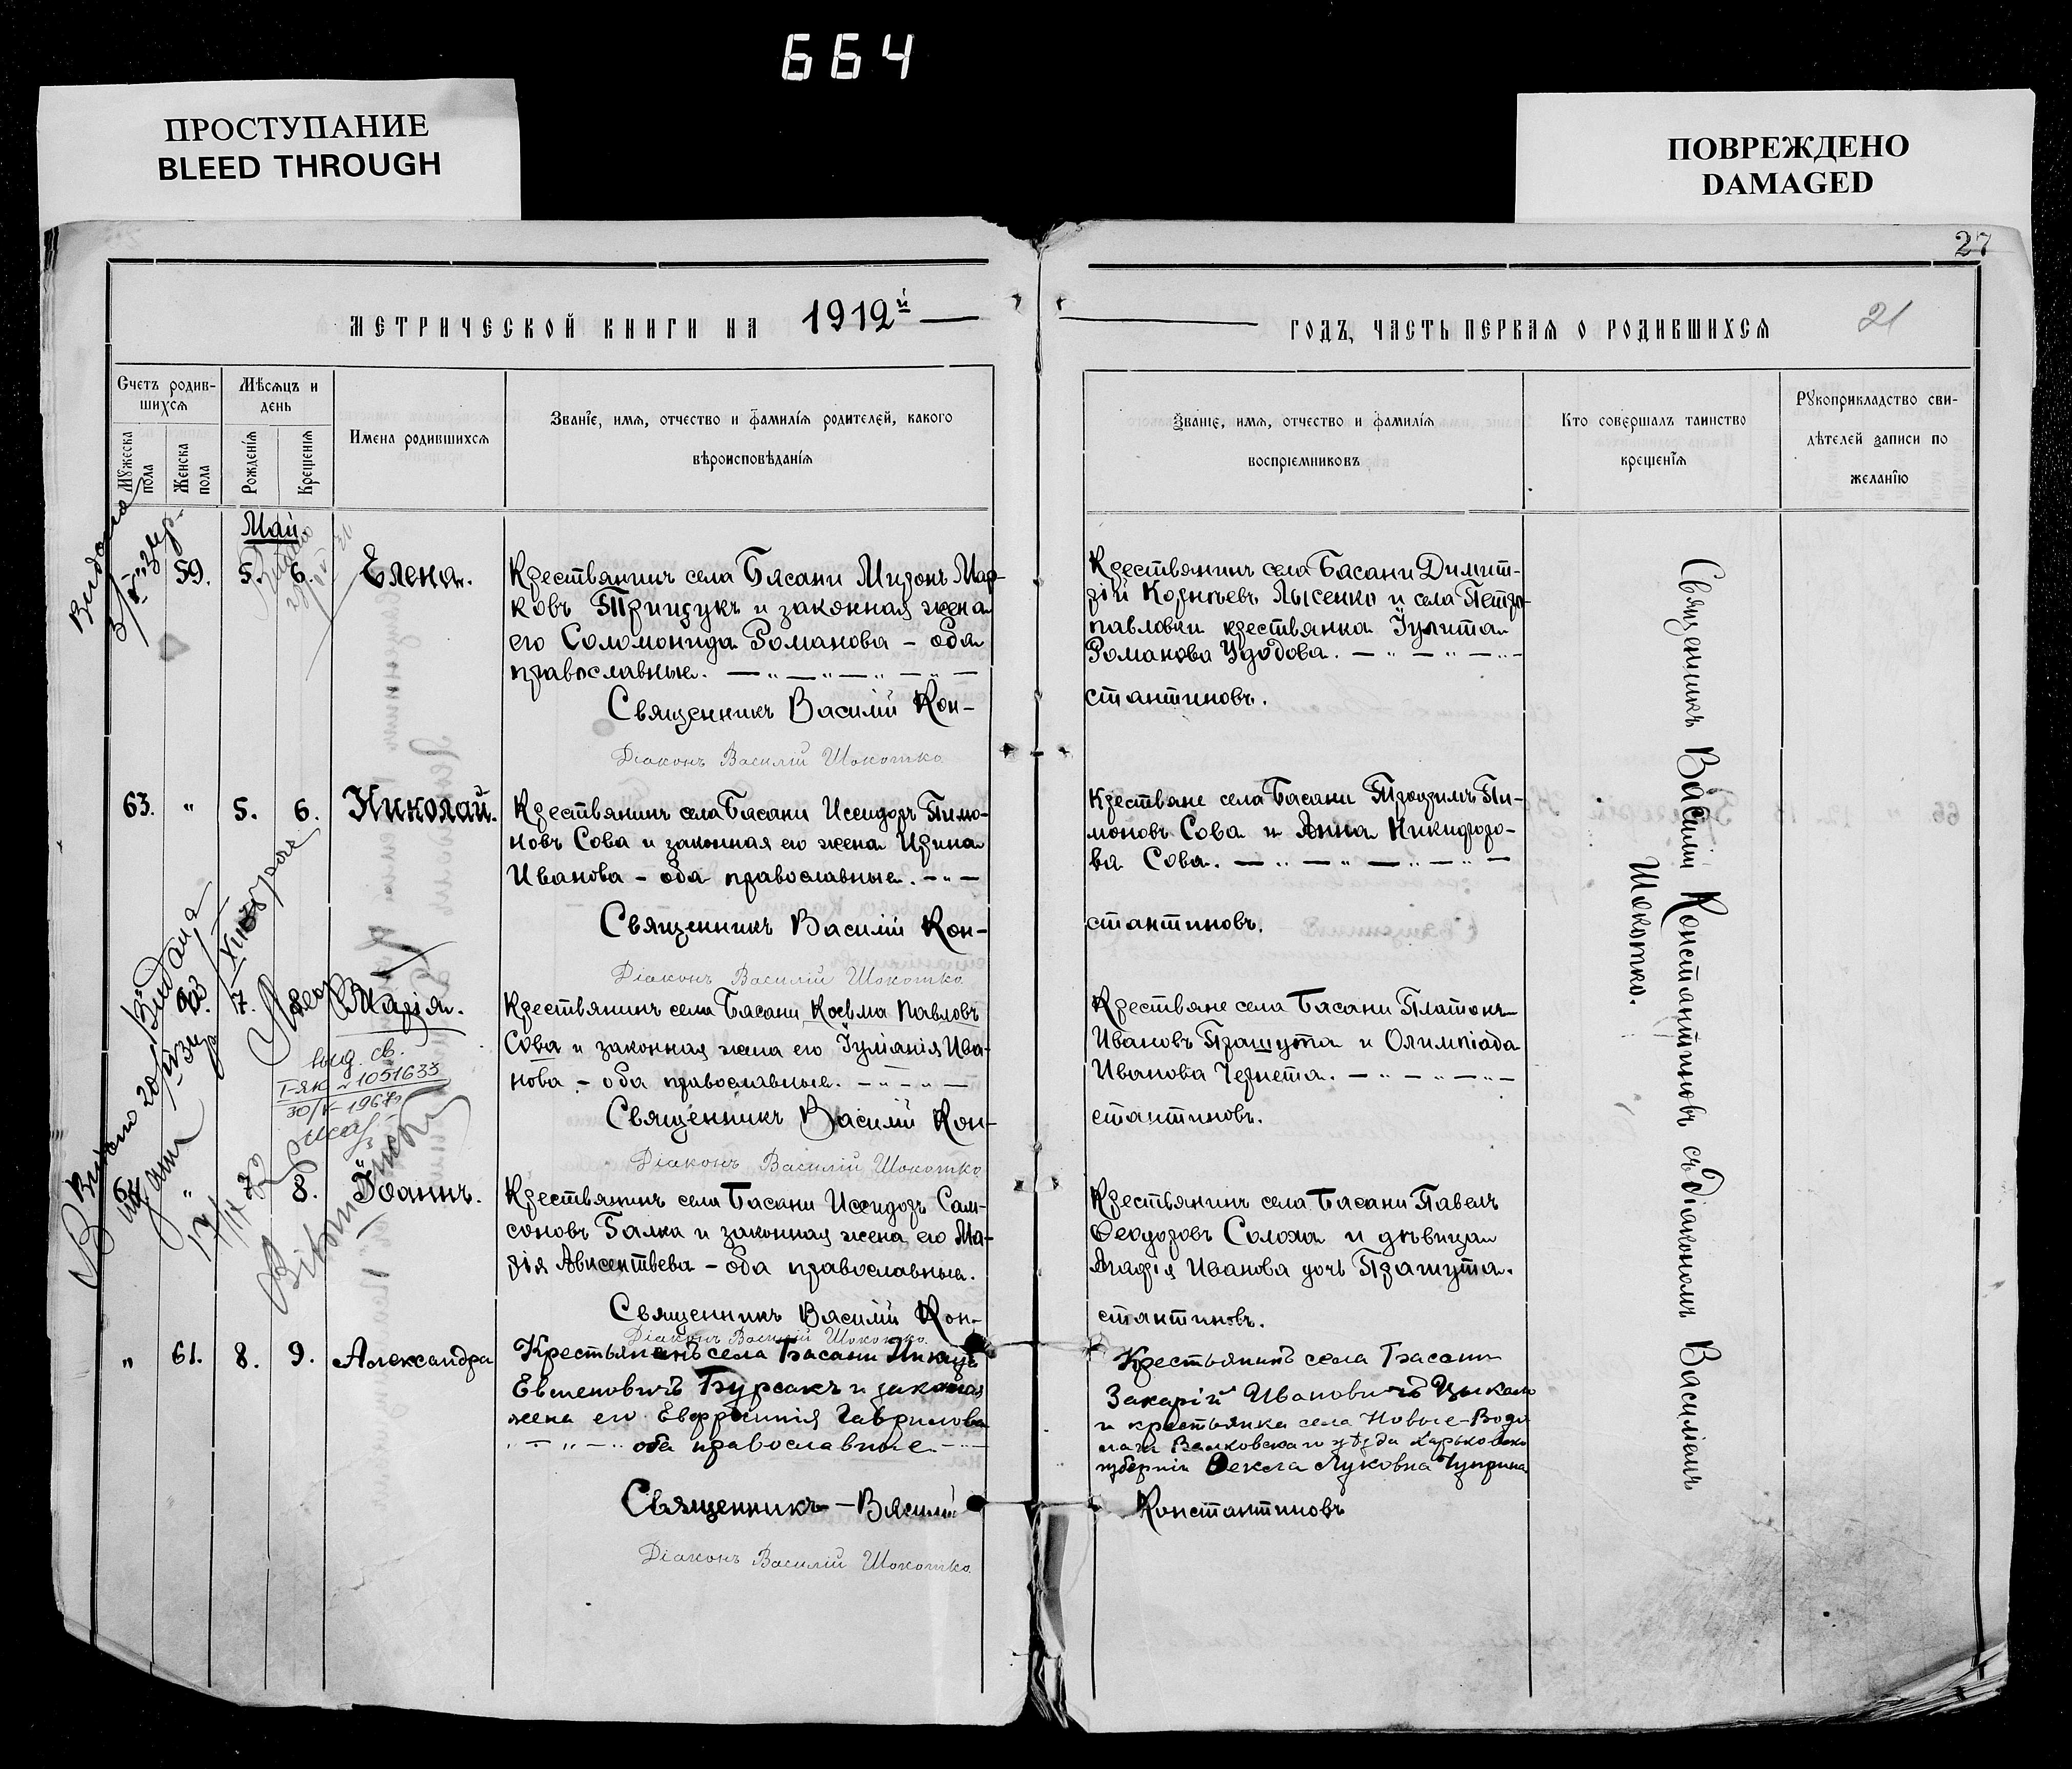 664
ПРОСТУПАНИЕ
BLEED THROUGH
ПОВРЕЖДЕНО
DAMAGED
27
МЕТРИЧЕСКОЙ КНИГИ НА 1912й
ГОДЪ, ЧАСТЬ ПЕРВАЯ О РОДИВШИХСЯ
21
Счетъ родив-
шихся
Мужеска
пола
Женска
пола
Мѣсяцъ и
день
Рожденія
Крещенія
Имена родившихся
Званіе, имя, отчество и фамилія родителей, какого
вѣроисповѣданія
Званіе, имя, отчество и фамилія
воспріемниковъ
Кто совершалъ таинство
крещенія
Рукоприкладство сви-
дѣтелей записи по
желанію
Май
59. 5. 6. Елена.
Крестьянинъ села Басани Миронъ Мар-
ковъ Прищукъ и законная жена
его Соломонида Романова – оба
православные.
Священникъ Василій Кон-
Діаконъ Василій Шокотко
Крестьянинъ села Басани Димит-
рій Корнѣевъ Лысенко и села Петро-
павловки крестьянка Іулита
Романова Удодова.
стантиновъ.
63. " 5. 6. Николай.
Крестьянинъ села Басани Исидоръ Пимо-
новъ Сова и законная его жена Ирина
Иванова – оба православные.
Священникъ Василій Кон-
Діаконъ Василій Шокотко
Крестьяне села Басани Трофимъ Пи-
моновъ Сова и Анна Никифоро-
ва Сова.
стантиновъ.
7. 8. Марія.
Крестьянинъ села Басани Косьма Павловъ
Сова и законная жена его Іуліанія Ива-
нова – оба православные.
Священникъ Василій Кон-
Діаконъ Василій Шокотко
Крестьяне села Басани Платонъ
Ивановъ Прашута и Олимпіада
Иванова Чернета.
стантиновъ.
выд. св.
I-ЯК № 1051633
30/V-1967
" 8. Іоаннъ.
Крестьянинъ села Басани Исидоръ Сам-
соновъ Балка и законная жена его Ма-
рія Авксентьева – оба православные.
Священникъ Василій Кон-
Діаконъ Василій Шокотко
Крестьянинъ села Басани Павелъ
Ѳеодоровъ Солоха и дѣвица
Агафія Иванова дочь Прашута.
стантиновъ.
" 61. 8. 9. Александра
Крестьянинъ села Басани
Евменовичъ Бурсакъ и законная
жена его Евфросинія Гаврилова
оба православные
Священникъ – Василій
Діаконъ Василій Шокотко
Крестьянинъ села Басани
Захарій Ивановичъ
и крестьянка села Новые-Водо
лаги Валковскаго уѣзда Харьковской
губерніи Ѳекла Луковна Чуприна
Константиновъ
Священникъ Василій Константиновъ съ діакономъ Василіемъ
Шокотко.